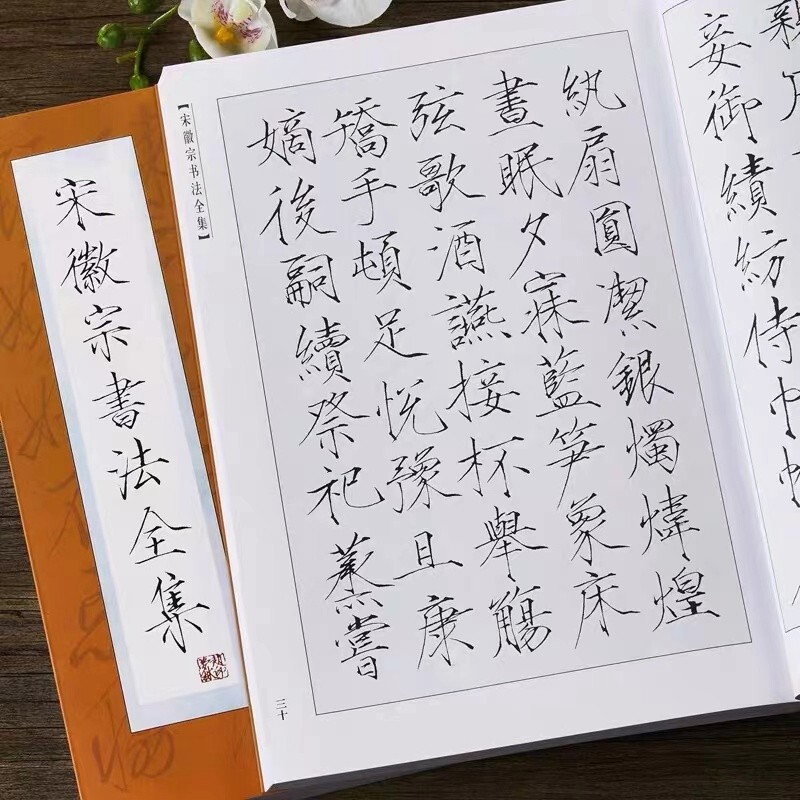 妾御績紡侍巾
紈扇圓潔銀燭煒煌
晝眠夕寐藍笋象床
弦歌酒讌接杯舉觴
矯手頓足悅豫且康
嫡後嗣續祭祀蒸嘗
【宋徽宗书法全集】
三十
宋徽宗書法全集